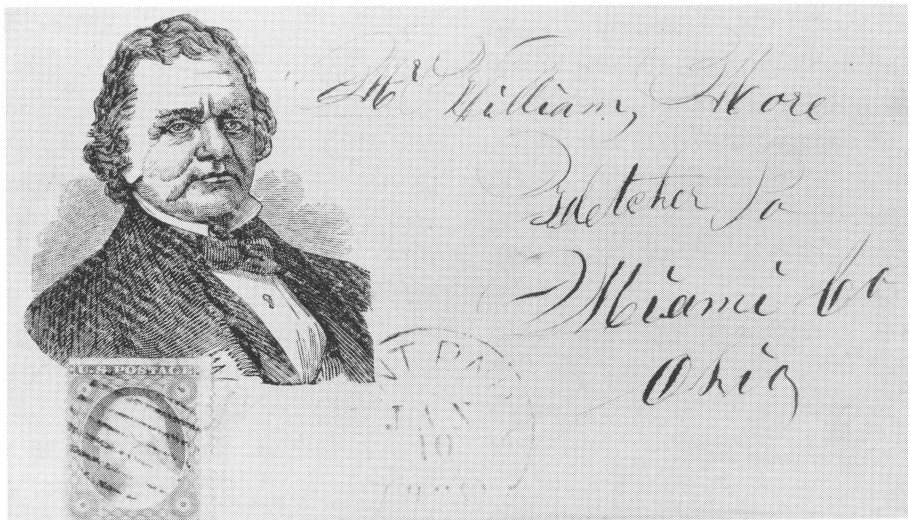 Mr William, More
Fletcher Po
Miami Co
Ohio
U.S. POSTAGE
NT PA
JAN
10